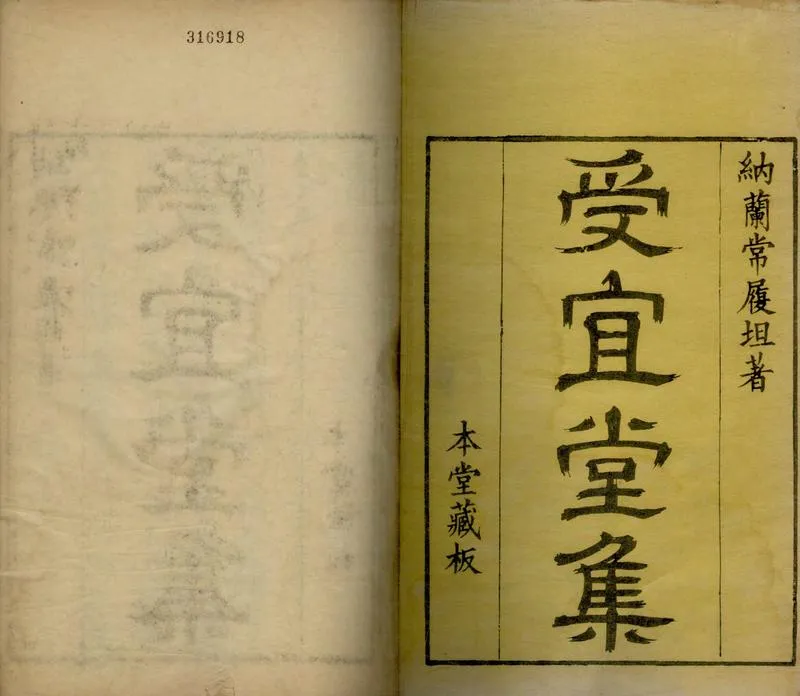 316918
納蘭常履坦著
受宜堂集
本堂藏板